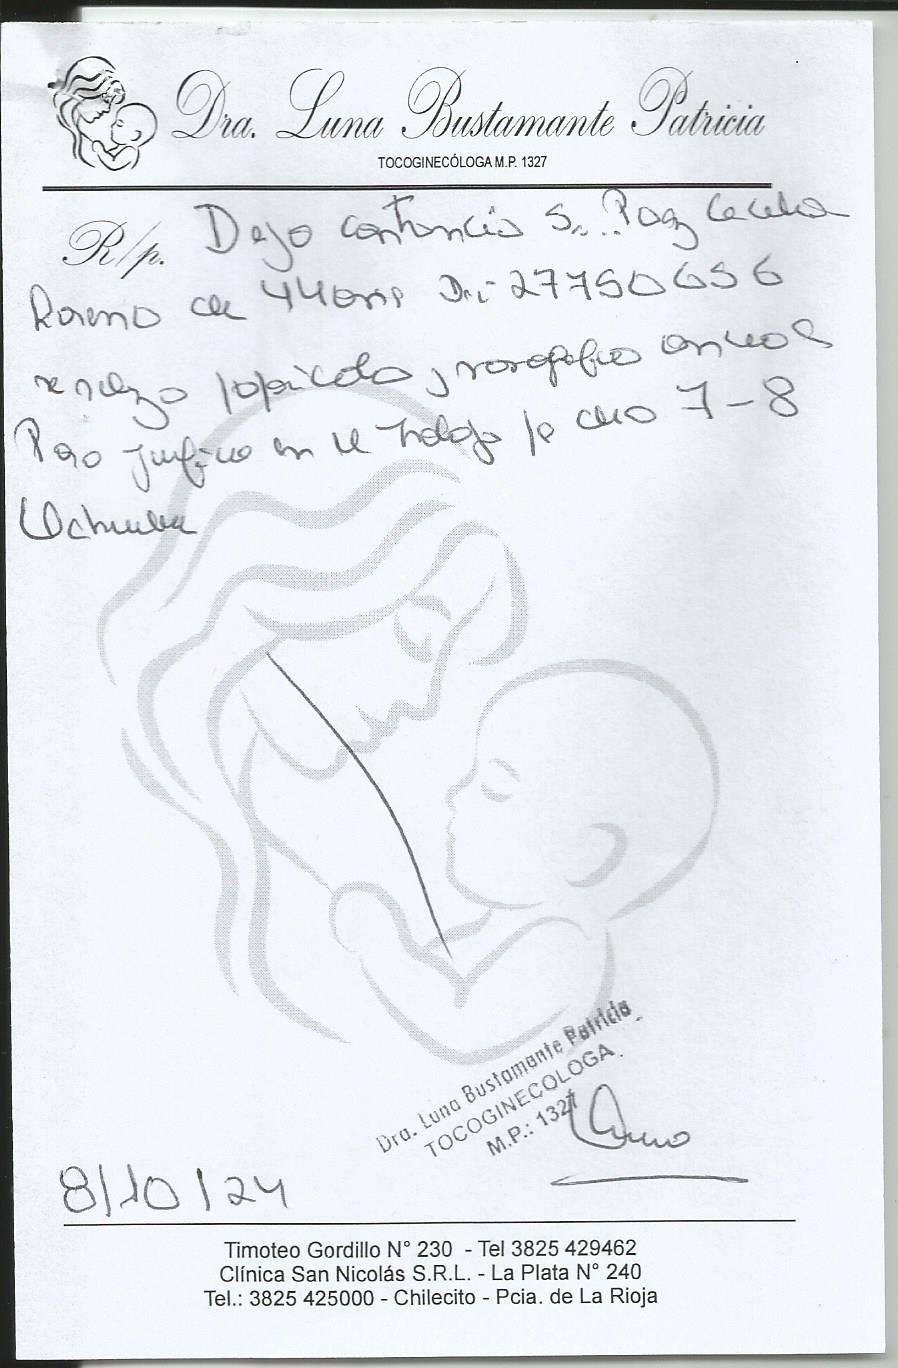 Dra. Luna Bustamante Patricia
TOCOGINECÓLOGA M.P. 1327
R/p. Dejo constancia Paz Cecilia
de 44 27750656
realizo
Para en trabajo 7-8
Octubre
Dra. Luna Bustamante Patricia
TOCOGINECOLOGA.
M.P.: 1327
8/10/24
Timoteo Gordillo N° 230 - Tel 3825 429462
Clínica San Nicolás S.R.L. - La Plata N° 240
Tel.: 3825 425000 - Chilecito - Pcia. de La Rioja